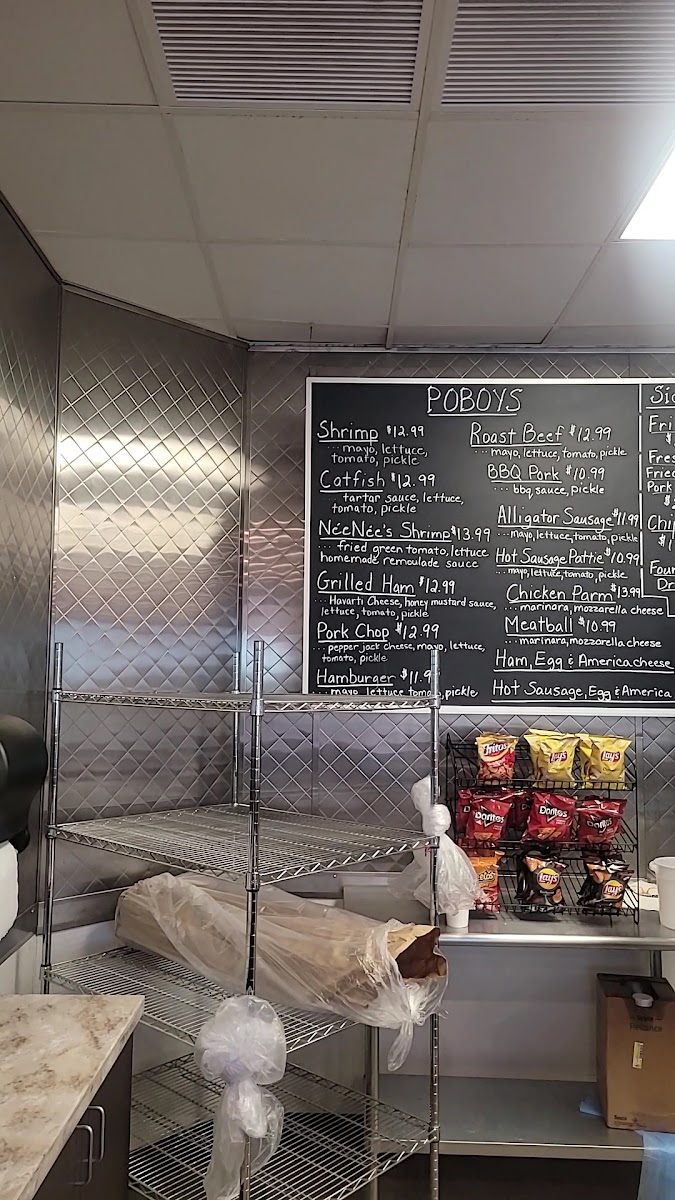 POBOYS
Shrimp $12.99
... mayo, lettuce,
tomato, pickle
Catfish $12.99
... tartar sauce, lettuce,
tomato, pickle
NéeNée's Shrimp $13.99
... fried green tomato, lettuce
homemade remoulade sauce
Grilled Ham $12.99
... Havarti Cheese, honey mustard sauce,
lettuce, tomato, pickle
Pork Chop $12.99
... pepper jack cheese, mayo, lettuce,
tomato, pickle
Hamburger $11.9
... mayo, lettuce, tomato, pickle
Roast Beef $12.99
... mayo, lettuce, tomato, pickle
BBQ Pork $10.99
... bbq, sauce, pickle
Alligator Sausage $11.99
... mayo, lettuce, tomato, pickle
Hot Sausage Pattie $10.99
... mayo, lettuce, tomato, pickle
Chicken Parm $13.99
... marinara, mozzarella cheese
Meatball $10.99
... marinara, mozzarella cheese
Ham, Egg & America cheese
Hot Sausage, Egg & America
Sid
Fri
Fres
Fried
Pork
Chi
Foun
Dr
Fritos
Lay's
Lay's
Doritos
Doritos
Doritos
Lay's
Lay's